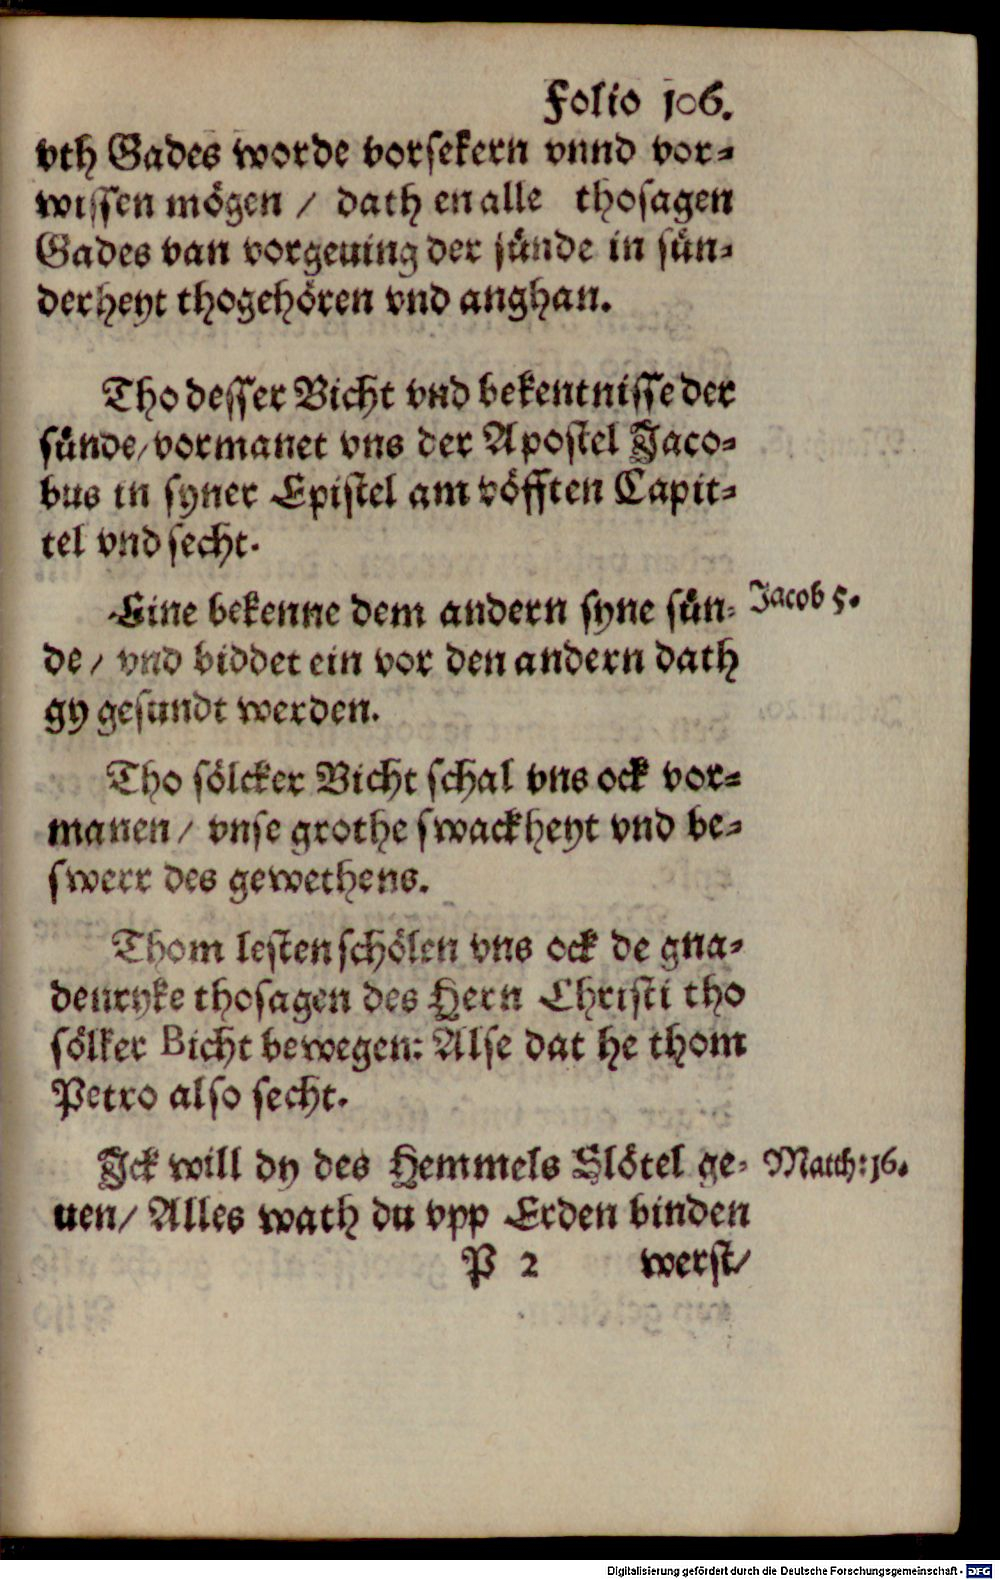 Folio 106.
vth Gades worde vorsekern vnnd vor-
wissen mögen / dath en alle thosagen
Gades van vorgeuing der sünde in sün-
derheyt thogehören vnd anghan.
Tho desser Bicht vnd bekentnisse der
sünde/ vormanet vns der Apostel Jaco-
bus in syner Epistel am vöfften Capit-
tel vnd secht.
Eine bekenne dem andern syne sün-
de / vnd biddet ein vor den andern dath
gy gesundt werden.
Jacob 5.
Tho sölcker Bicht schal vns ock vor-
manen / vnse grothe swackheyt vnd be-
swerr des gewethens.
Thom lesten schölen vns ock de gna-
denryke thosagen des Hern Christi tho
sölker Bicht bewegen: Alse dat he thom
Petro also secht.
Jck will dy des Hemmels Slötel ge-
uen/ Alles wath du vpp Erden binden
Matth: 16.
P 2 werst/
Digitalisierung gefördert durch die Deutsche Forschungsgemeinschaft - DFG